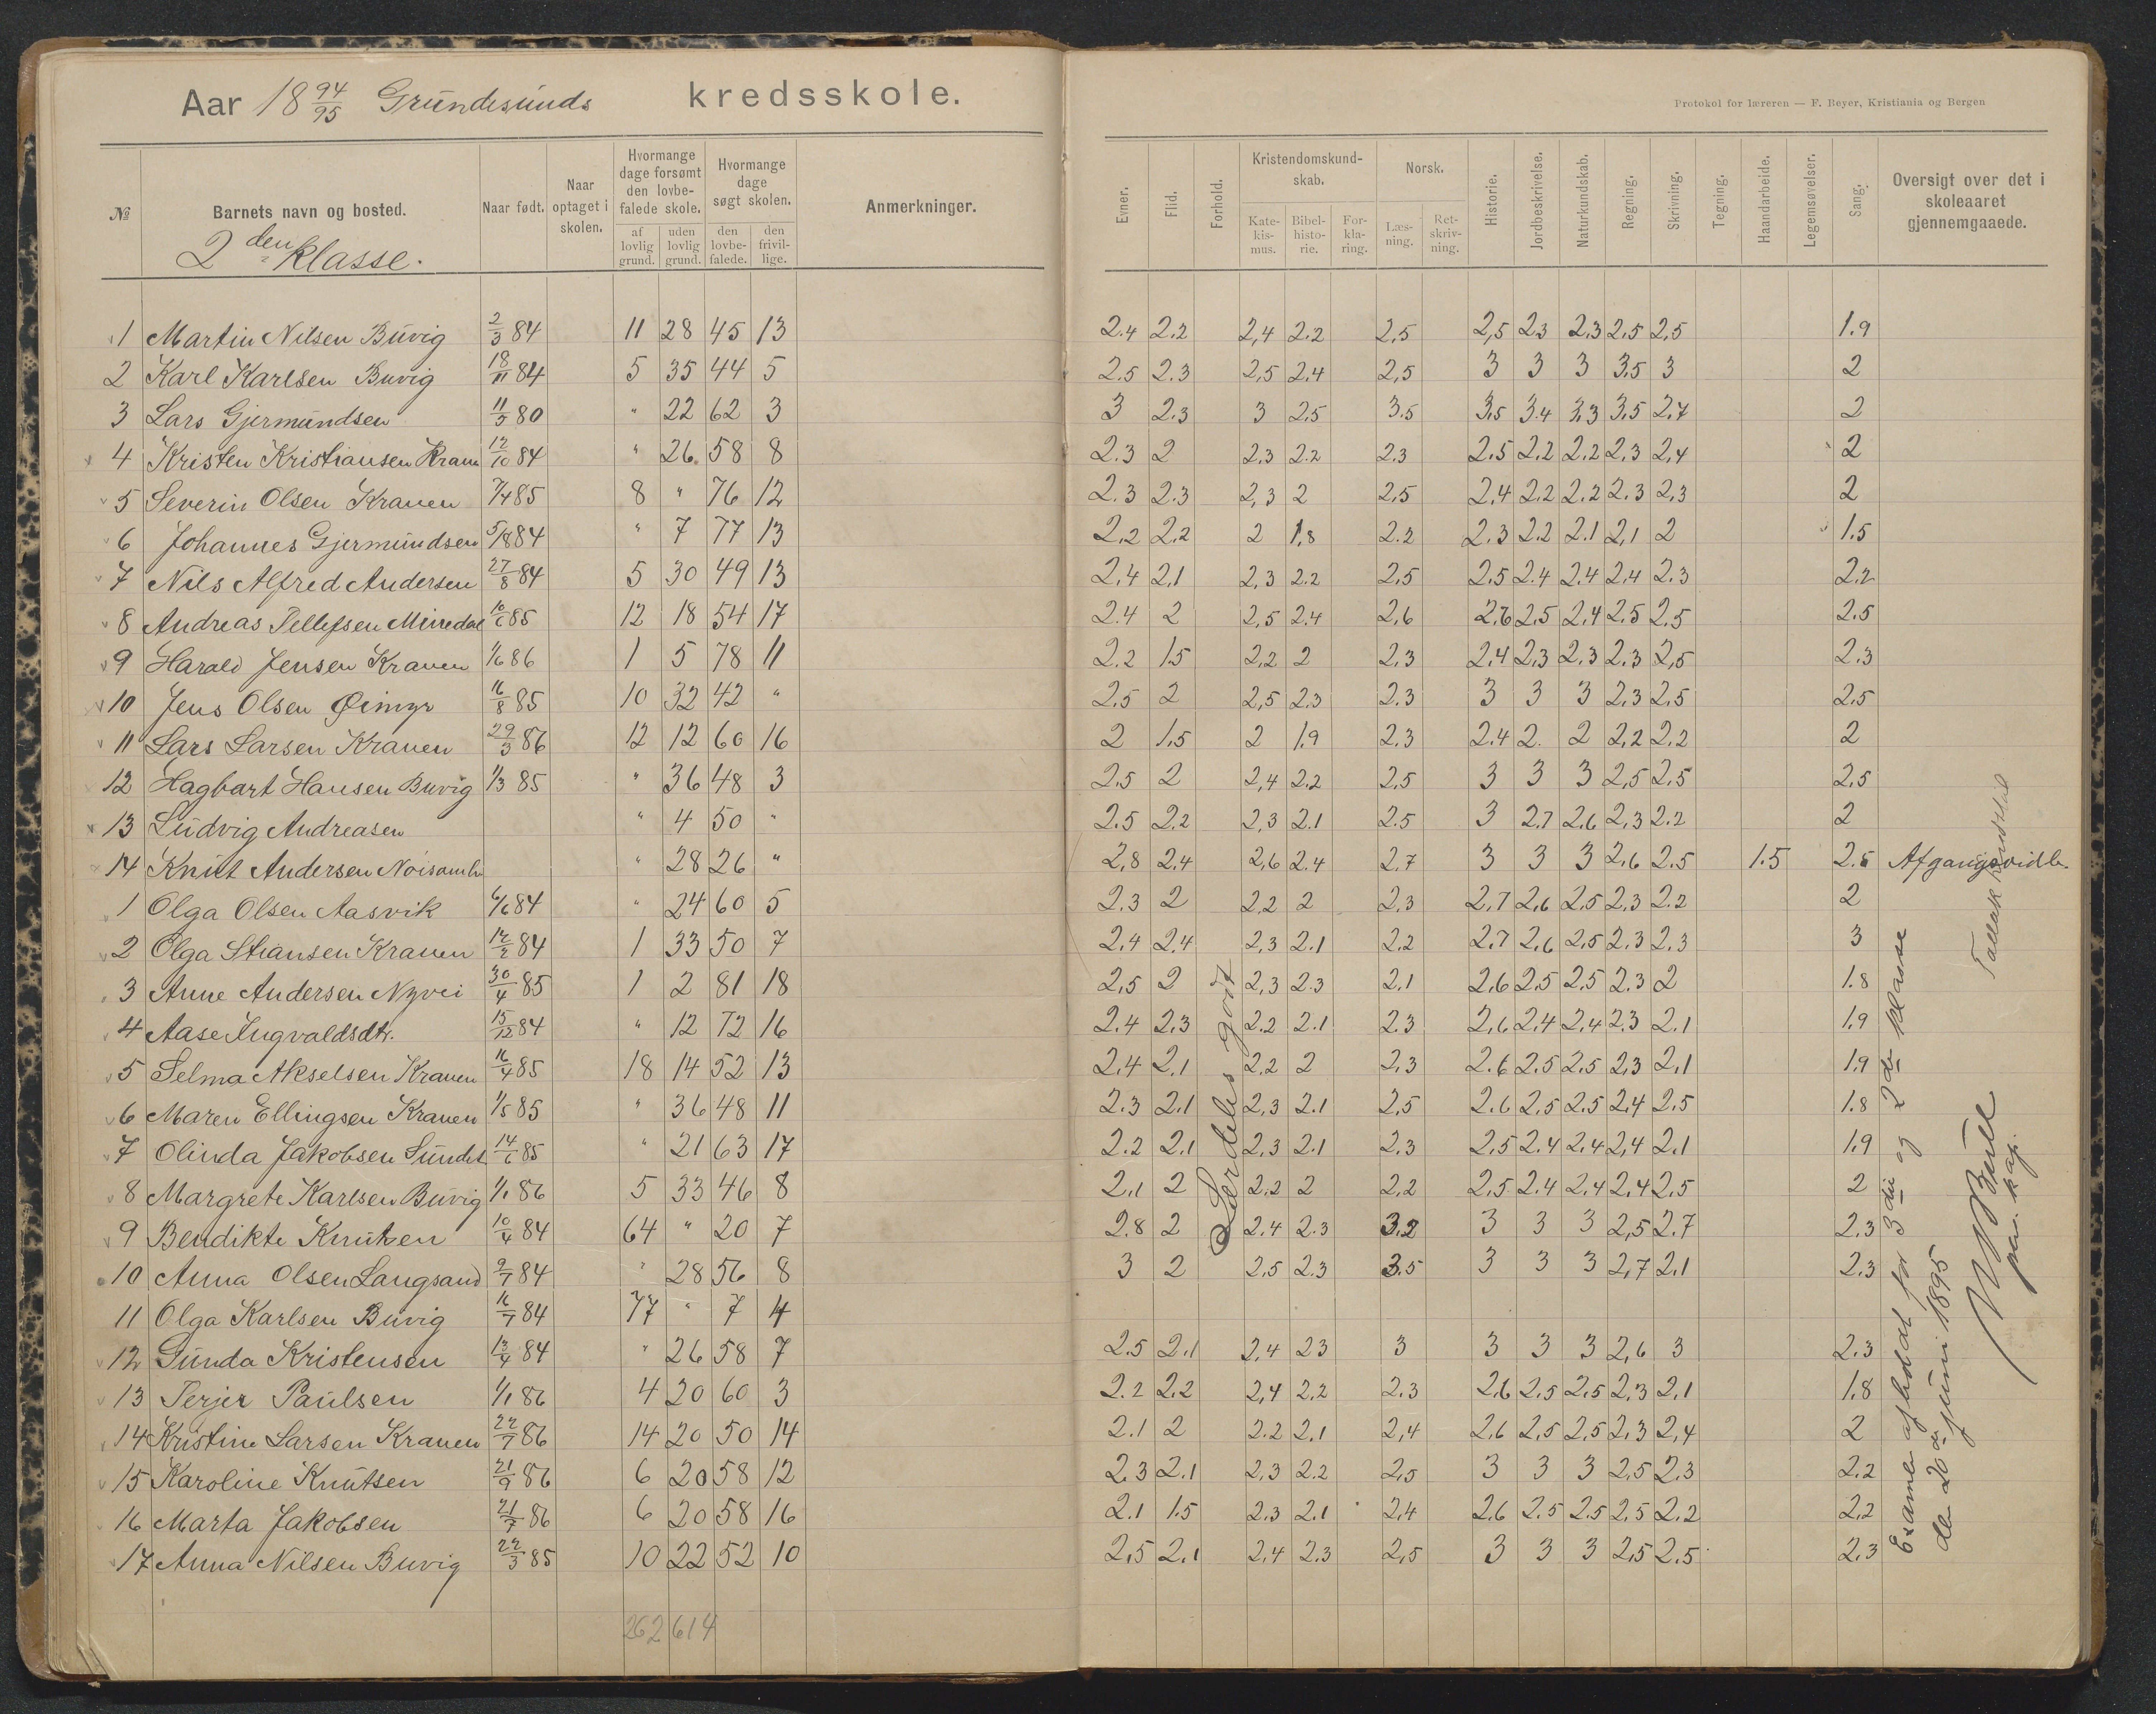 Aar 18 94/95 Grundesunds kredsskole.
Protokol for læreren — F. Beyer, Kristiania og Bergen
№ Barnets navn og bosted. Naar født. Naar optaget i skolen. Hvormange dage forsømt den lovbefalede skole. af lovlig grund. uden lovlig grund. Hvormange dage søgt skolen. den lovbefalede. den frivillige. Anmerkninger.
Evner. Flid. Forhold. Kristendomskundskab. Katekismus. Bibelhistorie. Forklaring. Norsk. Læsning. Retskrivning. Historie. Jordbeskrivelse. Naturkundskab. Regning. Skrivning. Tegning. Haandarbeide. Legemsøvelser. Sang. Oversigt over det i skoleaaret gjennemgaaede.
2den klasse.
1 Martin Nilsen Buvig 2/3 84 11 28 45 13 2.4 2.2 2,4 2.2 2,5 2,5 2.3 2.3 2.5 2,5 1.9
2 Karl Karlsen Buvig 18/11 84 5 35 44 5 2.5 2.3 2,5 2.4 2,5 3 3 3 3.5 3 2
3 Lars Gjermundsen 80 " 22 62 3 3 2.3 3 2.5 3.5 3,5 3.4 3.3 3,5 2.7 2
4 Kristen Kristiansen Kraue 12/10 84 " 26 58 8 2.3 2 2,3 2.2 2.3 2.5 2.2 2.2 2,3 2,4 2
5 Severin Olsen Krauen 7/4 85 8 " 76 12 2.3 2.3 2,3 2 2,5 2,4 2.2 2.2 2.3 2,3 2
6 Johannes Gjermundsen 5/8 84 " 7 77 13 2,2 2,2 2 1,8 2.2 2.3 2.2 2.1 2,1 2 1.5
7 Nils Alfred Andersen 27/8 84 5 30 49 13 2,4 2,1 2,3 2.2 2,5 2.5 2.4 2.4 2,4 2.3 2.2
8 Andreas Tellefsen Minedal 10/6 85 12 18 54 17 2.4 2 2,5 2.4 2,6 2.6 2.5 2,4 2.5 2,5 2.5
9 Harald Jensen Krauen 1/6 86 1 5 78 11 2.2 1.5 2,2 2 2,3 2.4 2,3 2.3 2.3 2,5 2.3
10 Jens Olsen Øimyr 16/8 85 10 32 42 " 2.5 2 2,5 2.3 2.3 3 3 3 2,3 2,5 2,5
11 Lars Larsen Krauen 29/3 86 12 12 60 16 2 1.5 2 1.9 2.3 2.4 2. 2 2,2 2.2 2
12 Hagbart Hansen Buvig 1/3 85 " 36 48 3 2.5 2 2,4 2.2 2,5 3 3 3 2,5 2.5 2,5
13 Ludvig Andreasen " 4 50 " 2.5 2.2 2,3 2.1 2.5 3 2.7 2,6 2,3 2.2 2
14 Knut Andersen " 28 26 " 2,8 2.4 2,6 2.4 2.7 3 3 3 2,6 2.5 1.5 2.5 Afgangsvidb.
1 Olga Olsen Aasvik 6/6 84 " 24 60 5 2.3 2 2,2 2 2,3 2.7 2,6 2.5 2.3 2.2 2
2 Olga Stiansen Krauen 12/2 84 1 33 50 7 2.4 2.4 2,3 2.1 2.2 2.7 2,6 2,5 2.3 2.3 3
3 Anne Andersen Nyvei 30/4 85 1 2 81 18 2,5 2 2,3 2.3 2,1 2.6 2.5 2.5 2.3 2 1.8
4 Aase Ingvaldsdtr. 15/12 84 " 12 72 16 2.4 2,3 2.2 2.1 2.3 2,6 2,4 2.4 2,3 2.1 1,9
5 Selma Akselsen Krauen 16/4 85 18 14 52 13 2,4 2.1 2,2 2 2,3 2.6 2.5 2.5 2,3 2,1 1.9
6 Maren Ellingsen Krauen 1/5 85 " 36 48 11 2.3 2.1 2,3 2.1 2,5 2.6 2,5 2.5 2,4 2.5 1.8
7 Olinda Jakobsen Sundet 14/6 85 " 21 63 17 2.2 2.1 2,3 2.1 2.3 2,5 2.4 2.4 2,4 2.1 1.9
8 Margrete Karlsen Buvig 1/1 86 5 33 46 8 2,1 2 2.2 2 2,2 2,5 2.4 2,4 2.4 2,5 2
9 Bendikte Knutsen 10/4 84 64 " 20 7 2.8 2 2.4 2.3 3.2 3 3 3 2,5 2.7 2.3
10 Anna Olsen Langsand 9/7 84 " 28 56 8 3 2 2,5 2.3 3.5 3 3 3 2,7 2.1 2.3
11 Olga Karlsen Buvig 16/7 84 77 " 7 4
12 Gunda Kristensen 13/4 84 " 26 58 7 2.5 2.1 2,4 2.3 3 3 3 3 2,6 3 2.3
13 Terjer Paulsen 1/1 86 4 20 60 3 2.2 2,2 2,4 2.2 2.3 2.6 2.5 2.5 2,3 2,1 1.8
14 Kristine Larsen Krauen 22/7 86 14 20 50 14 2.1 2 2.2 2.1 2,4 2.6 2,5 2,5 2.3 2,4 2
15 Karoline Knutsen 21/9 86 6 20 58 12 2.3 2.1 2,3 2.2 2,5 3 3 3 2,5 2.3 2.2
16 Marta Jakobsen 21/7 86 6 20 58 16 2.1 1.5 2.3 2.1 2,4 2.6 2.5 2.5 2,5 2.2 2,2
17 Anna Nilsen Buvig 22/3 85 10 22 52 10 2,5 2.1 2,4 2.3 2,5 3 3 3 2,5 2.5 2,3
262 614
Særdeles godt
Examen afholdt for 3die og 2de klasse
den 20de juni 1895
Bull